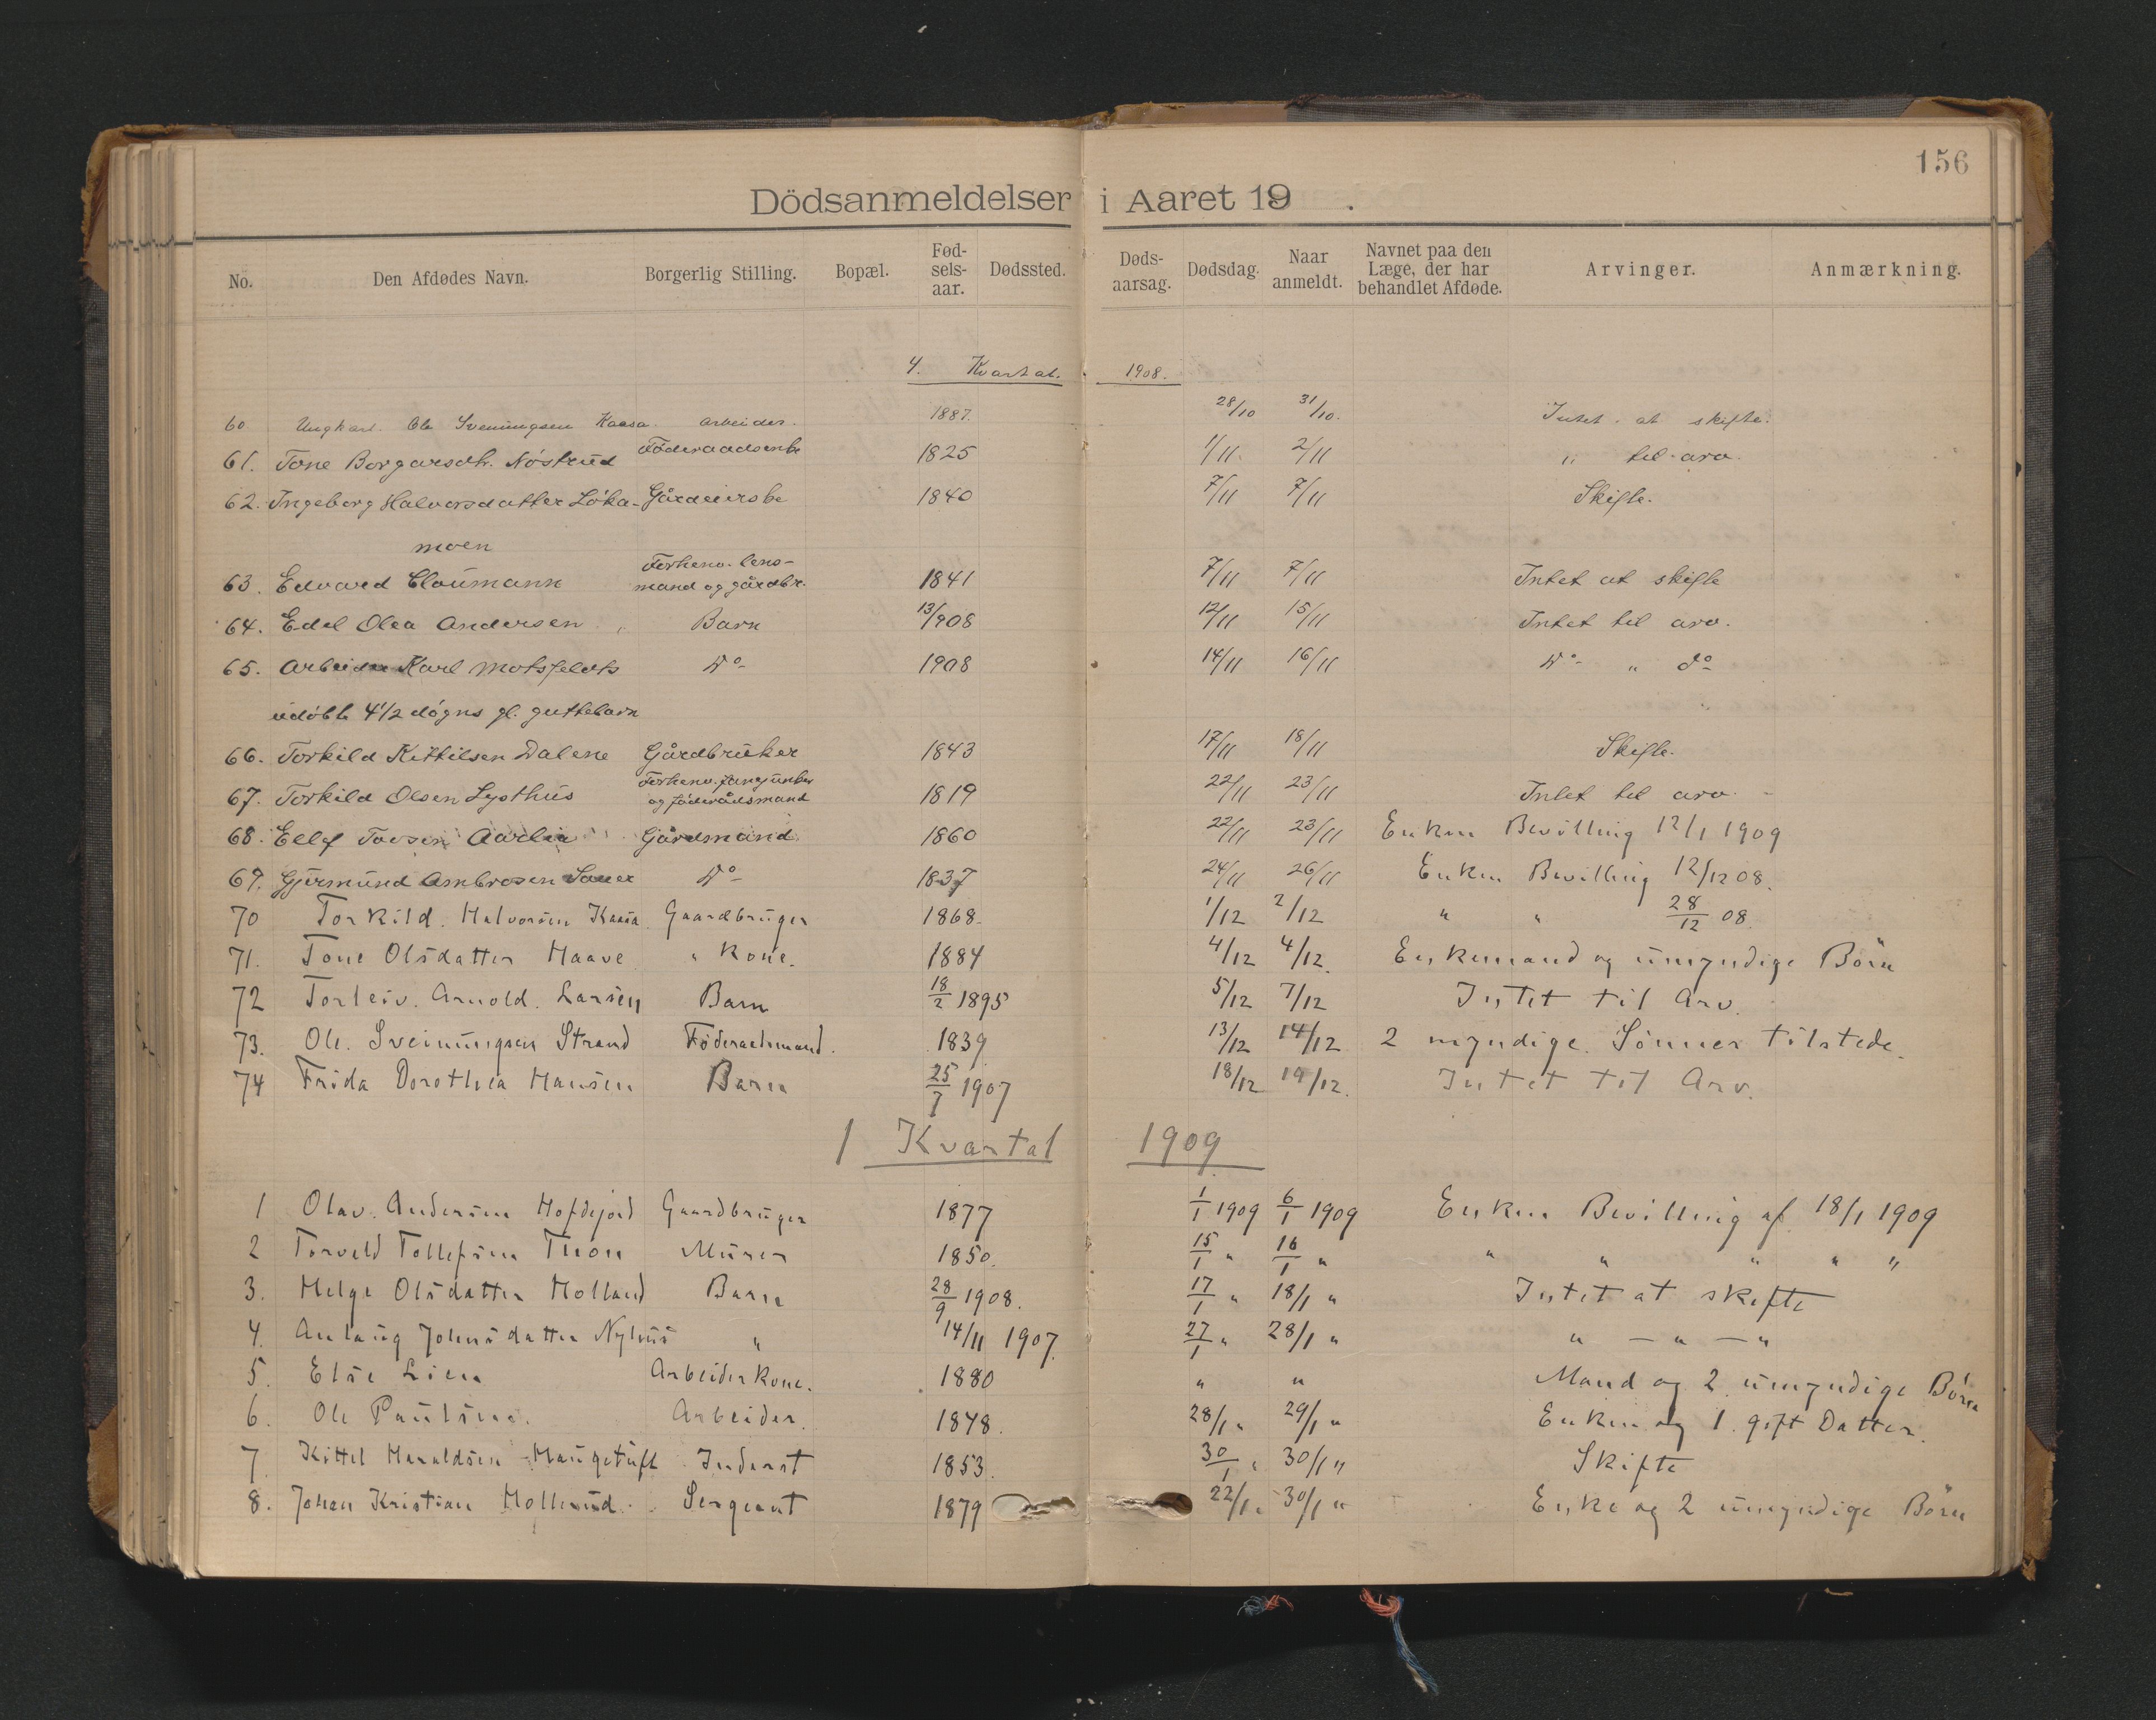 156
Dödsanmeldelser i Aaret 19 .
No. Den Afdødes Navn. Borgerlig Stilling. Bopæl. Fød-sels-aar. Dødssted. Døds-aarsag. Dødsdag. Naar anmeldt. Navnet paa den Læge, der har behandlet Afdøde. Arvinger. Anmærkning.
4. Kvartal. 1908.
60 Ungkarl. Ole Sveinungsen Kaasa. Arbeider. 1887. 28/10 31/10. Intet at skifte.
61. Tone Borgarsdtr. Nöstrud Föderaadsenke 1825 1/11. 2/11 " til arv.
62. Ingeborg Halvorsdatter Löka- Gårdeierske 1840 7/11 7/11 Skifte.
moen
63. Edvard Cloumann Forhenv. lens-mand og gårdbr. 1841 7/11 7/11 Intet at skifte
64. Edel Olea Andersen Barn 13/908 12/11 15/11 Intet til arv.
65. Arbeider Karl Motsfeldts Do 1908 14/11 16/11 Do " do
udöbte 4 1/2 døgns gl. guttebarn
66. Torkild Kittilsen Dalene Gårdbruker 1843 17/11 18/11 Skifte.
67. Torkild Olsen Lysthus Forhenv. og föderådsmand 1819 22/11 23/11 Intet til arv.
68. Ellef Tovsen Aarlia Gårdmand 1860 22/11 23/11 Enken Bevilling 12/1 1909
69. Gjermund Ambrosen Sauer Do 1837 24/11 26/11 Enken Bevilling 12/12 08.
70 Torkild. Halvorsen Kaasa Gaardbruger 1868. 1/12 2/12 " " 28/12 08.
71. Tone Olsdatter Haave " Kone. 1884 4/12 4/12. Enkemand og umyndige Börn
72 Torleiv. Arnold. Larsen Barn 18/2 1895 5/12 7/12 Intet til Arv.
73. Ole. Sveinungsen Strand Föderaadsmand. 1839 13/12 14/12 2 myndige Sönner tilstede.
74 Frida Dorothea Hansen Barn 25/7 1907 18/12 19/12. Intet til Arv.
1 Kvartal 1909
1 Olav. Andersen Hofdejord Gaardbruger 1877 1/1 1909 6/1 1909 Enken Bevilling af 18/1 1909
2 Torveld Tollefsen Thon Murer 1850. 15/1 " 16/1 " " " " " "
3. Helge Olsdatter Holland Barn 28/9 1908. 17/1 " 18/1 " Intet at skifte
4. Anlaug Johnsdatter Nyhus " 14/11 1907. 27/1 " 28/1 " " — " — "
5. Else Lien Arbeiderkone. 1880 " " Mand og 2 umyndige Börn
6. Ole Paulsen. Arbeider. 1848. 28/1 " 29/1 " Enken og 1 gift Datter.
7 Kittel Haraldsen Haugetuft Inderst 1853. 30/1 " 30/1 " Skifte
8. Johan Kristian Mollerud. Sergeant 1879 22/1 " 30/1 " Enke og 2 umyndige Börn